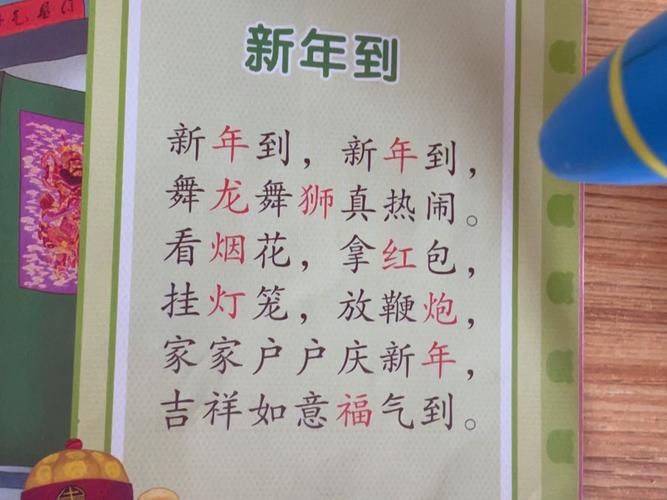 新年到
新年到，新年到，
舞龙舞狮真热闹。
看烟花，拿红包，
挂灯笼，放鞭炮，
家家户户庆新年，
吉祥如意福气到。